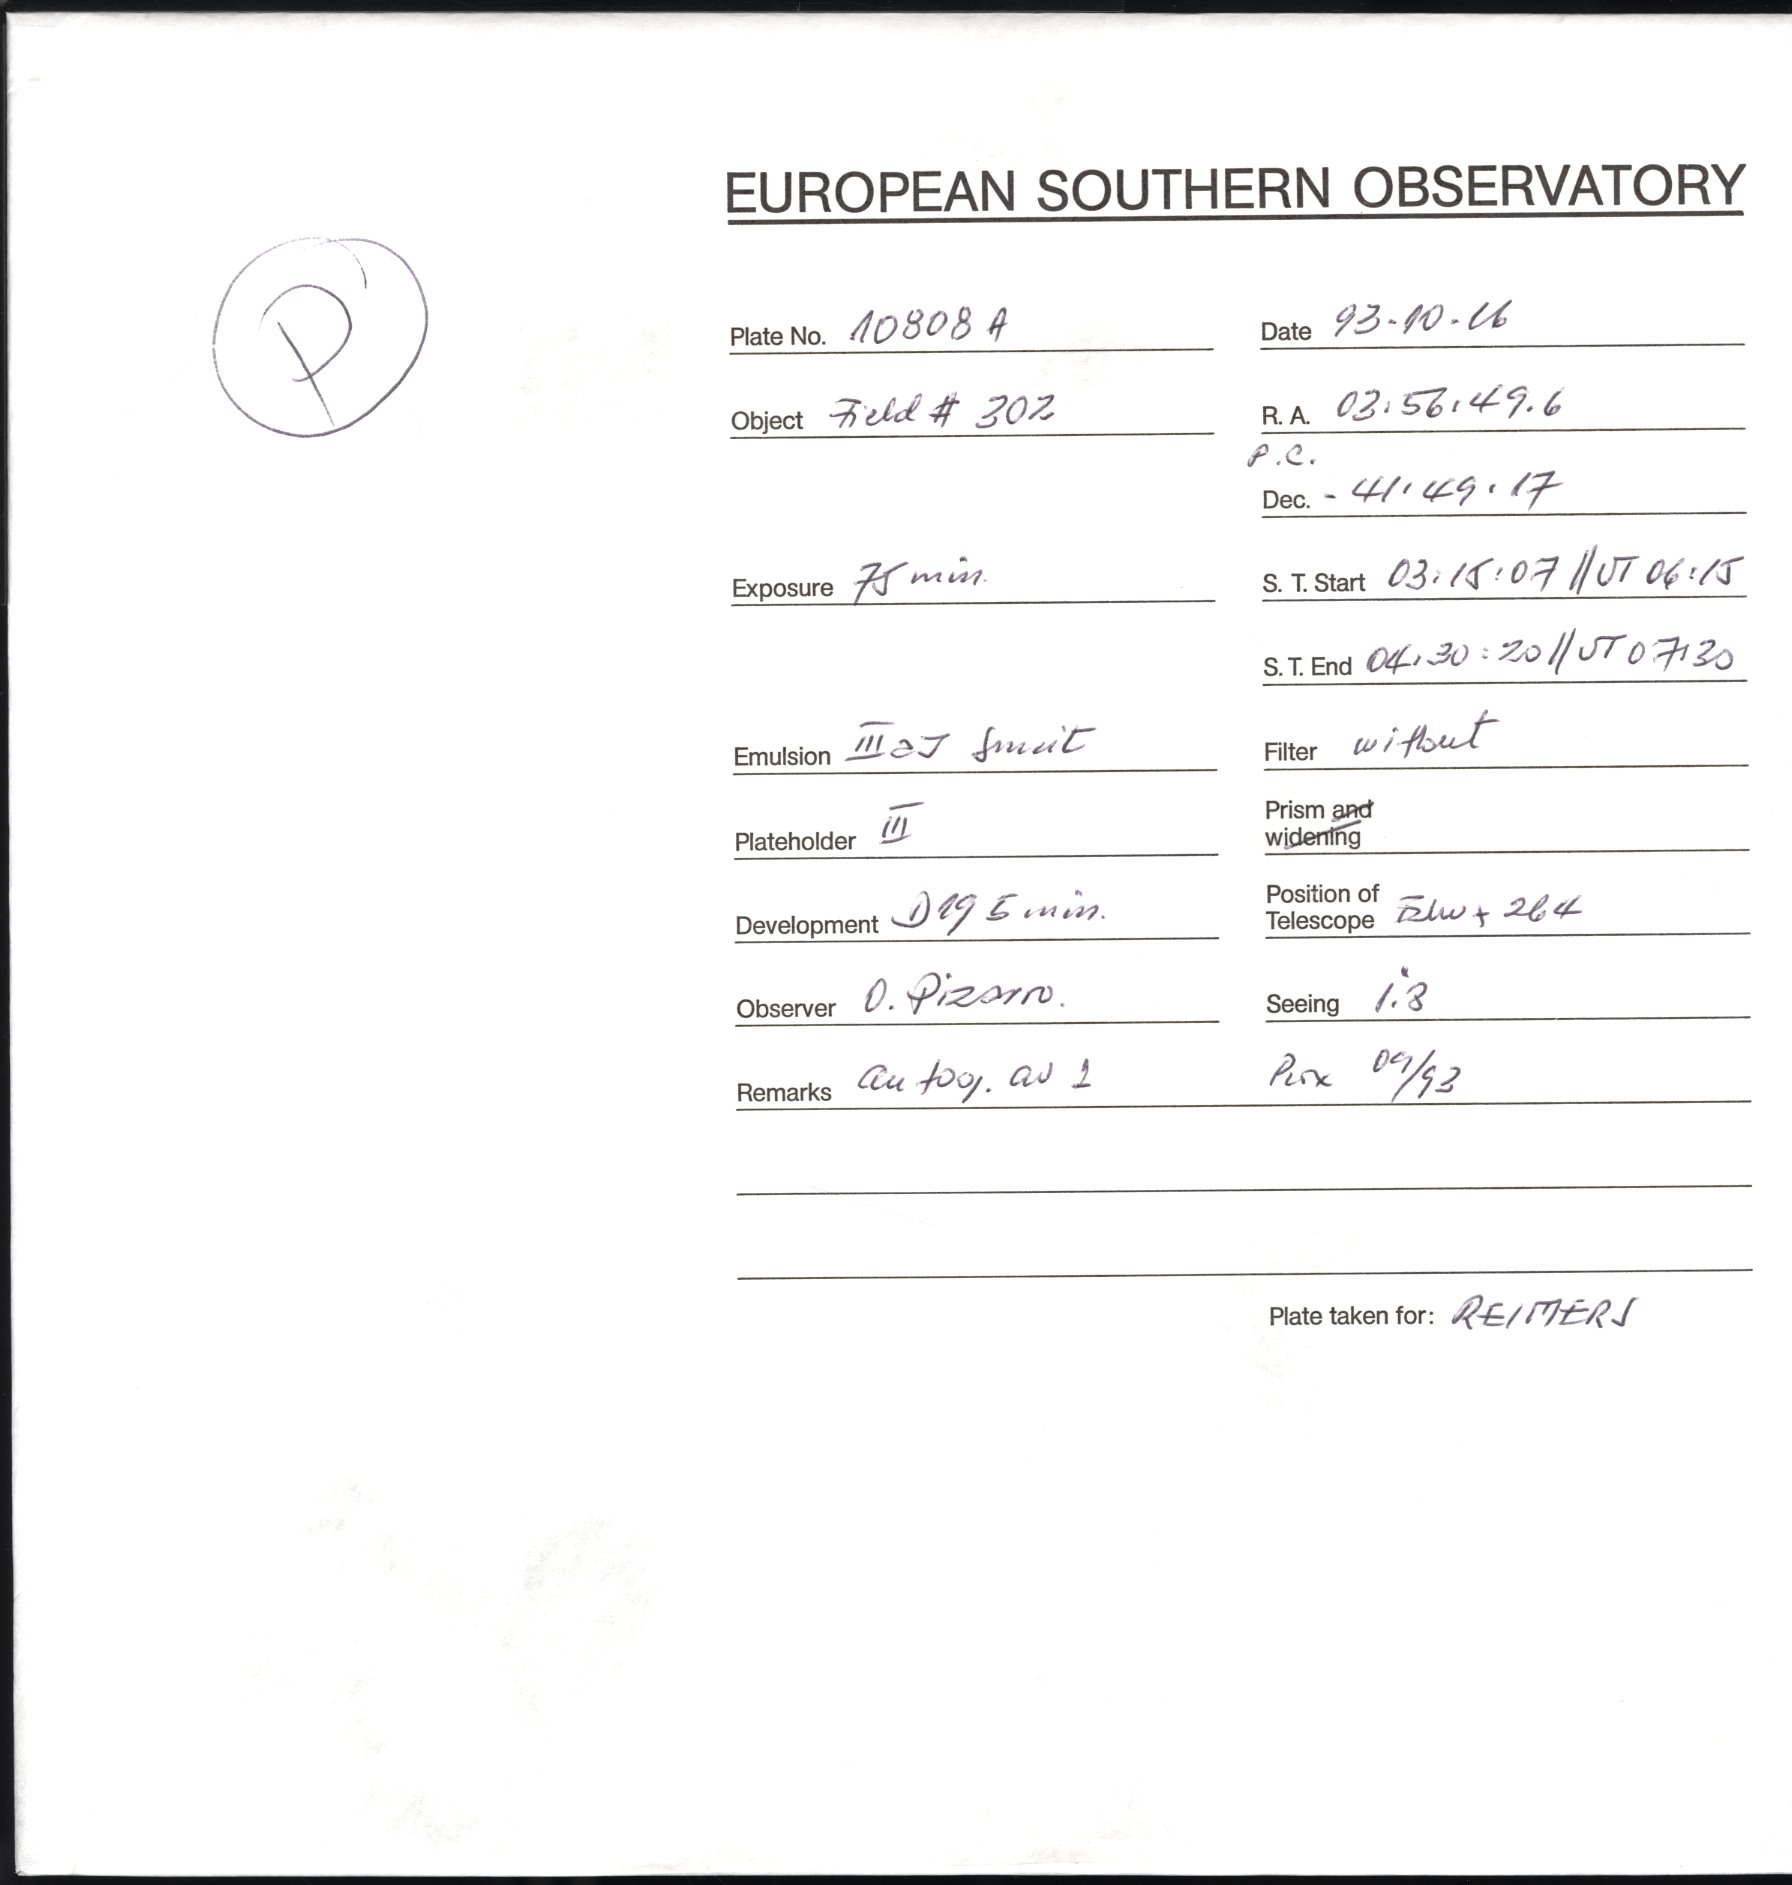 EUROPEAN SOUTHERN OBSERVATORY
P
Plate No. 10808 A
Date 93-10-16
Object Field # 302
R. A. 03:56:49.6
P.C.
Dec. - 41:49:17
Exposure 75 min.
S. T. Start 03:15:07 // UT 06:15
S. T. End 04:30:20 // UT 07:30
Emulsion III aJ
Filter without
Plateholder III
Prism and
widening
Development D19 5 min.
Position of
Telescope + 264
Observer O. Pizarro.
Seeing 1.8
Remarks autog. av 1 09/93
Plate taken for: REIMERS